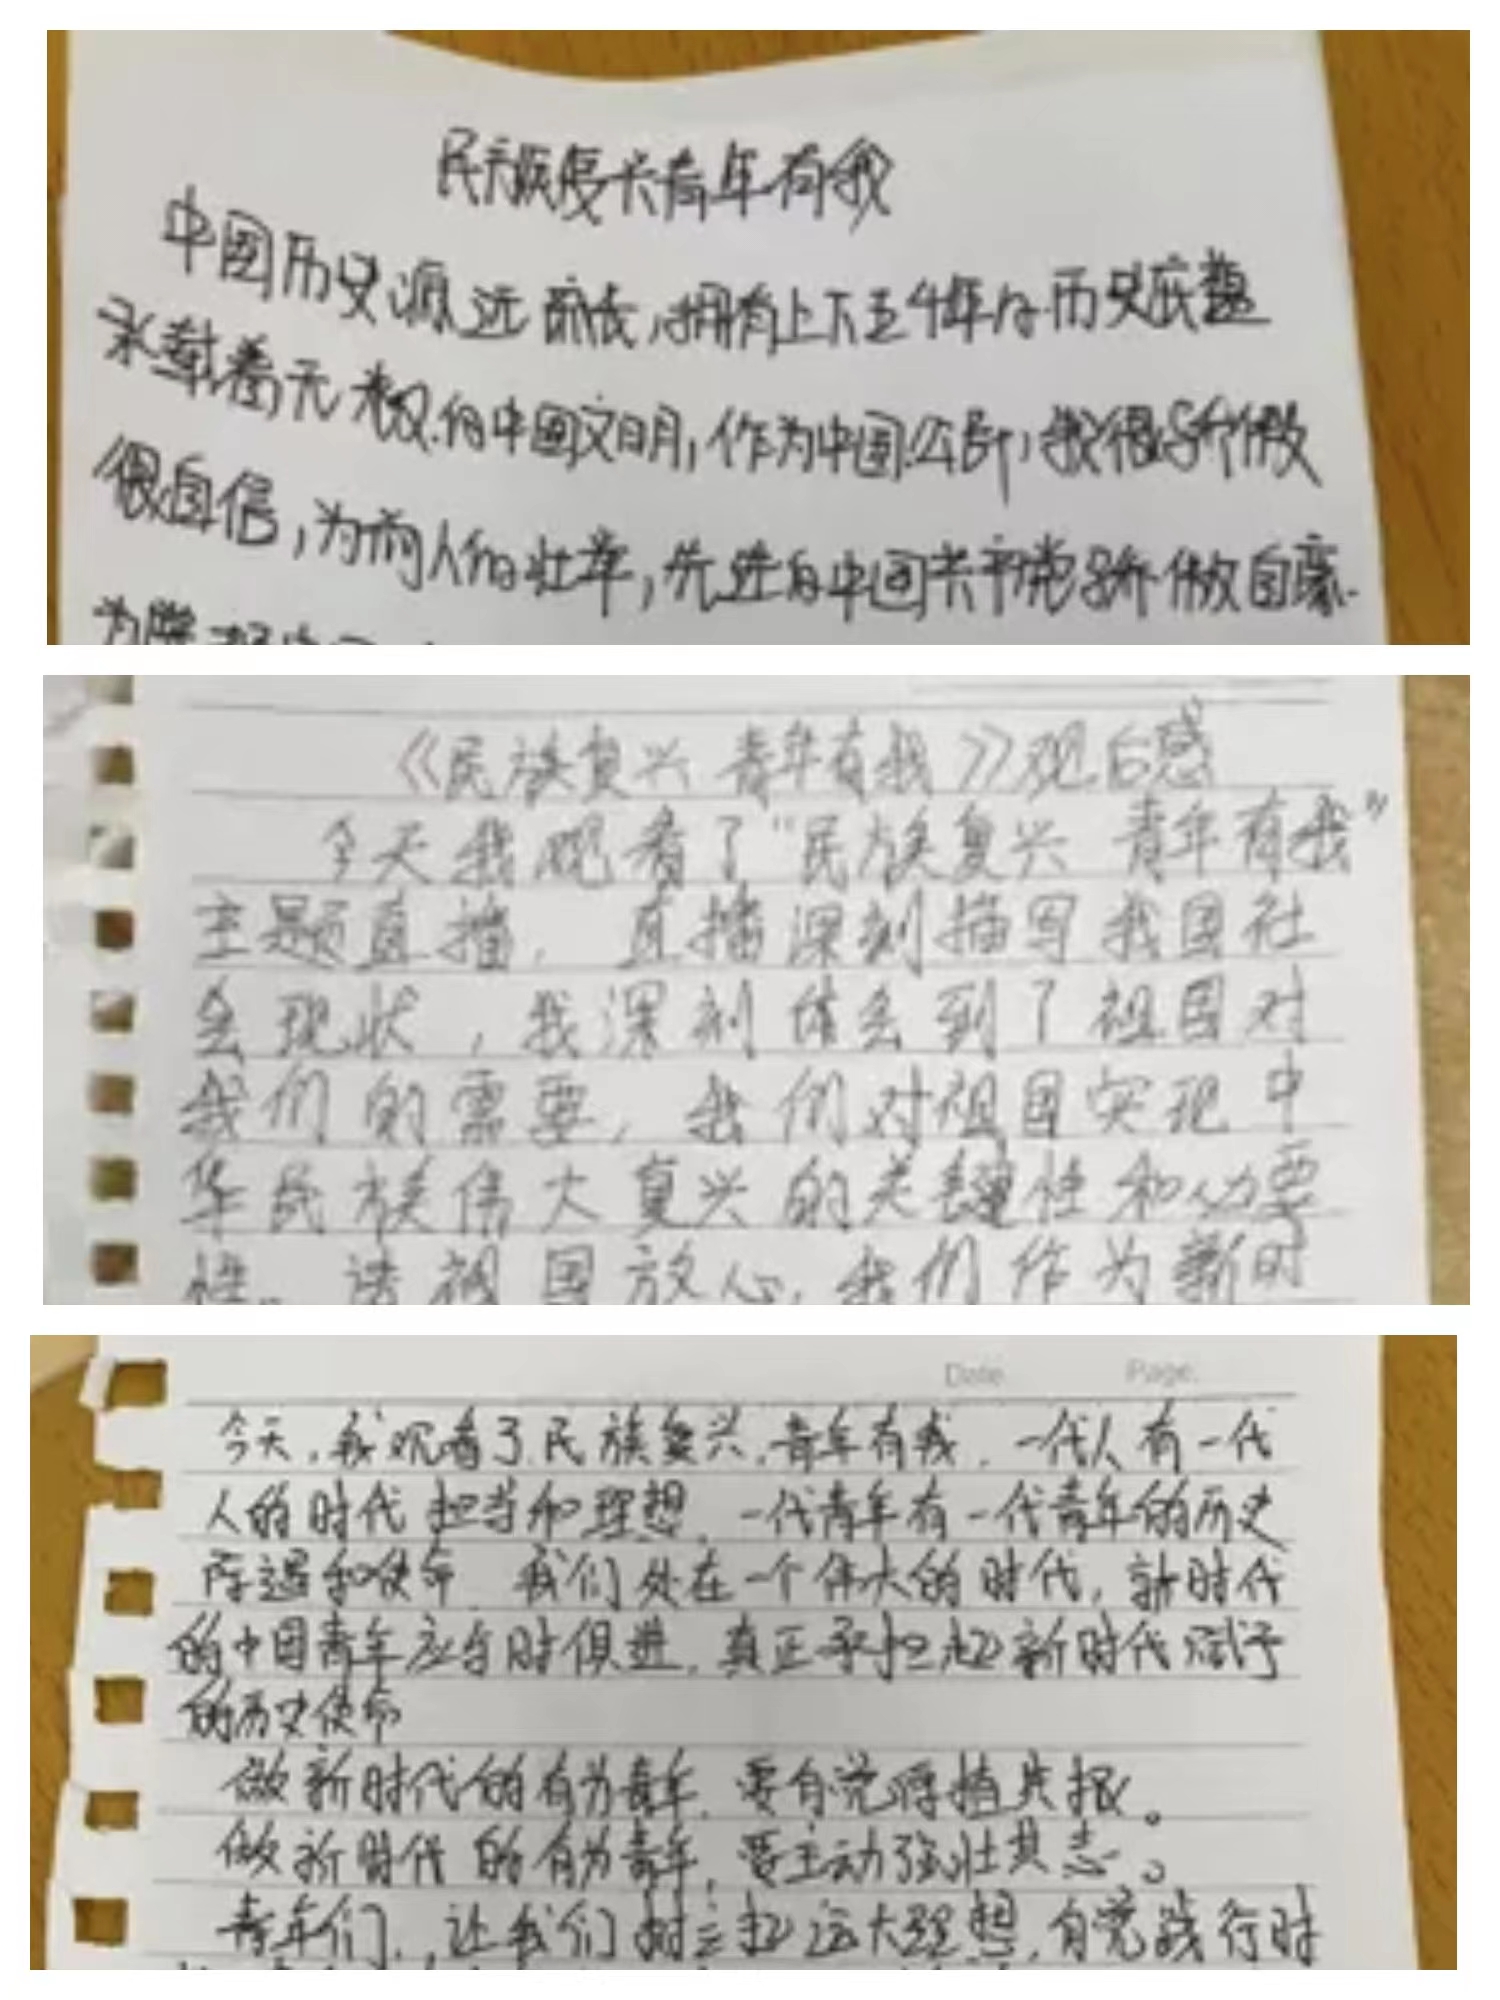 民族复兴青年有我
中国历史源远流长,拥有上下五千年的历史底蕴
承载着无数的中国文明,作为中国公民,我很骄傲
很自信,为前人的壮举,先进的中国共产党骄傲自豪.
《民族复兴 青年有我》观后感
今天我观看了“民族复兴 青年有我”
主题直播. 直播深刻描写我国社
会现状,我深刻体会到了祖国对
我们的需要,我们对祖国实现中
华民族伟大复兴的关键性和必要
性。请祖国放心,我们作为新时
Date Page:
今天,我观看了民族复兴,青年有我.一代人有一代
人的时代担当和理想.一代青年有一代青年的历史
际遇和使命.我们处在一个伟大的时代,新时代
的中国青年应与时俱进,真正承担起新时代赋予
的历史使命
做新时代的有为青年.要自觉厚植其根。
做新时代的有为青年,要主动强壮其志。
青年们,让我们树立起远大理想,自觉践行时